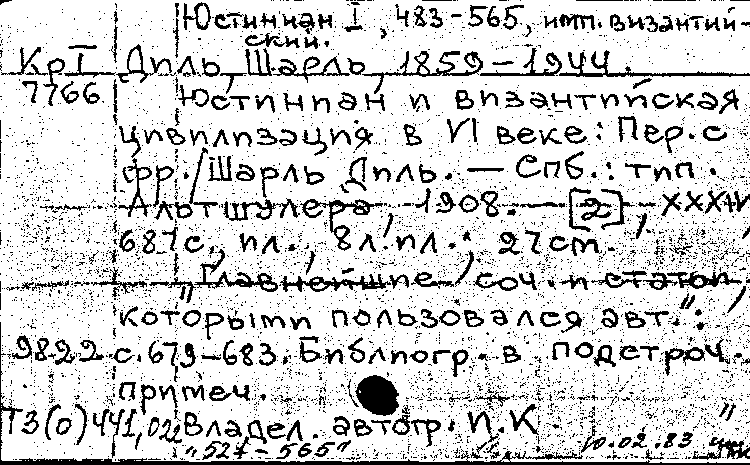 Юстиниан I, 483-565, имп. византий-
ский.
КрI Диль, Шарль, 1859-1944.
7766 Юстиниан и византийская
цивилизация в VI веке: Пер. с
фр./Шарль Диль. — Спб.: тип.
Альтшулера, 1908. — [2], XXXIV,
687 с., ил., 8 л. ил.; 27 cm.
„Главнейшие соч. и статьи,
которыми пользовался авт.":
9822 с. 679-683. Библиогр. в подстроч.
примеч.
Т3(0)441,022 Владел. автогр. И. К. "
„527 - 565" 10.02.83